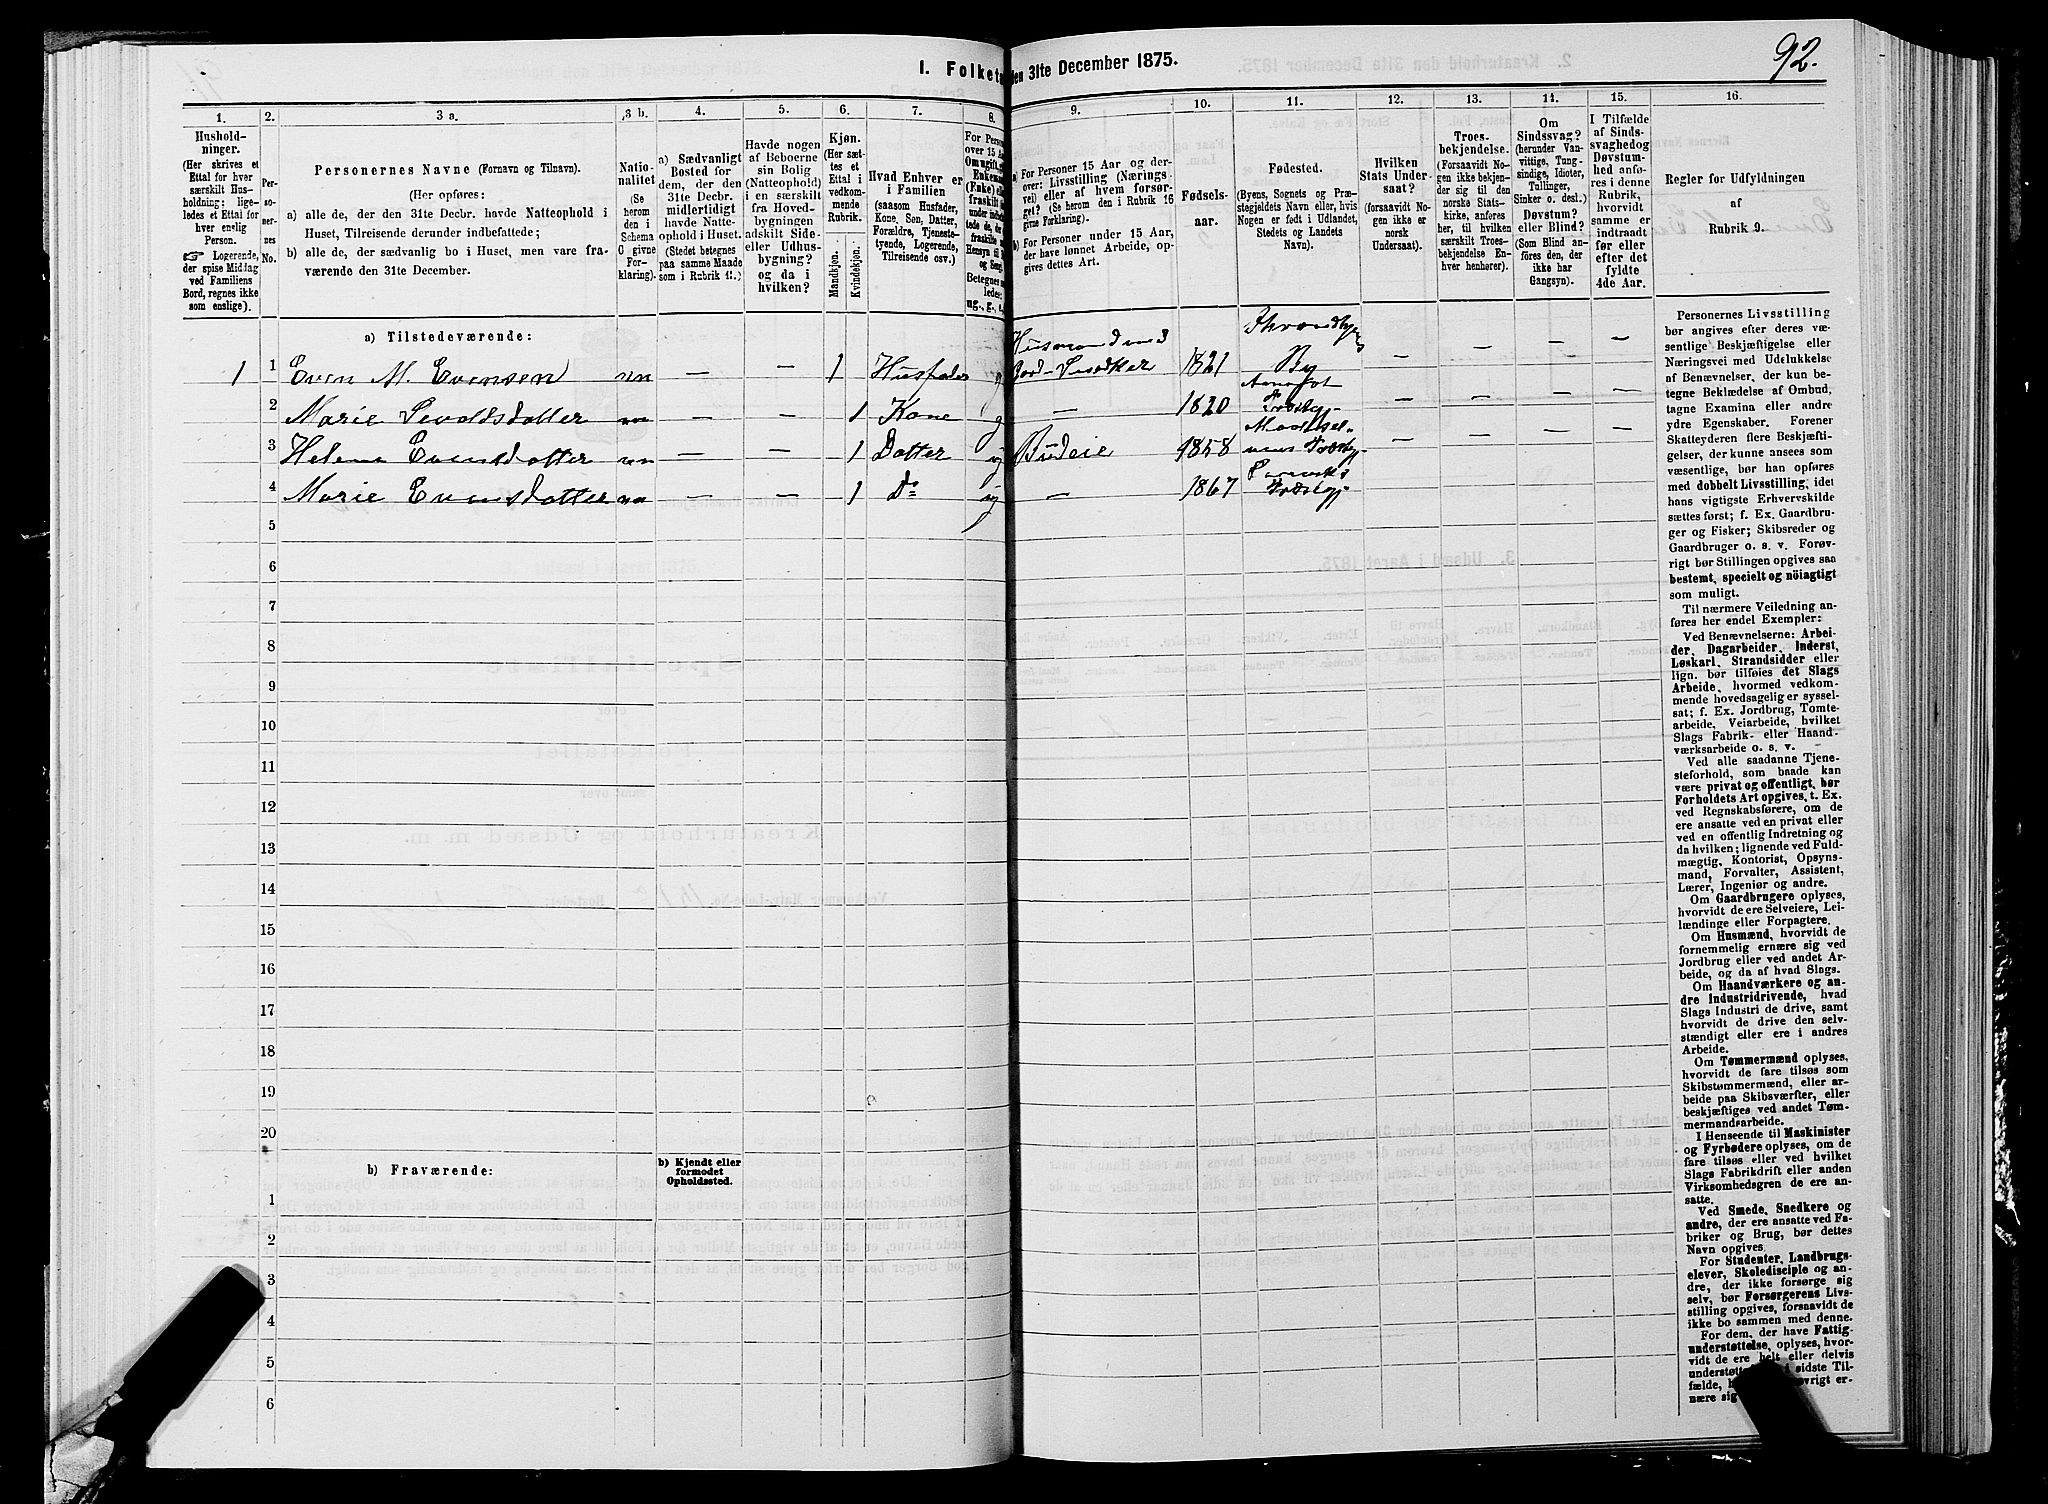 92.
I. Folketa
den 31te December 1875.
1.
2.
3 a.
3 b.
4.
5.
6.
7.
8.
9.
10.
11.
12.
13.
14.
15.
16.
Hushold-
ninger.
(Her skrives et
Ettal for hver
særskilt Hus-
holdning; lige-
ledes et Ettal for
hver enslig
Person.
Logerende,
der spise Middag
ved Familiens
Bord, regnes ikke
som enslige).
Per-
so-
ner-
nes
No.
Personernes Navne (Fornavn og Tilnavn).
(Her opføres:
a) alle de, der den 31te Decbr. havde Natteophold i
Huset, Tilreisende derunder indbefattede;
b) alle de, der sædvanlig bo i Huset, men vare fra-
værende den 31te December.
Natio-
nalitet
(Se
herom
den i
Schema
C givne
For-
klaring).
a) Sædvanligt
Bosted for
dem, der den
31te Decbr.
midlertidigt
havde Natte-
ophold i Huset.
(Stedet betegnes
paa samme Maade
som i Rubrik 11.)
Havde nogen
af Beboerne
sin Bolig
(Natteophold)
i en særskilt
fra Hoved-
bygningen
adskilt Side-
eller Udhus-
bygning?
og da i
hvilken?
Kjøn.
(Her sæt-
tes et
Ettal i
vedkom-
mende
Rubrik.
Mandkjøn.
Kvindekjøn.
Hvad Enhver er
i Familien
(saasom Husfader,
Kone, Søn, Datter,
Forældre, Tjeneste-
tyende, Logerende,
Tilreisende osv.)
a) For Personer 15 Aar og der-
over: Livsstilling (Nærings-
vei) eller af hvem forsør-
get? (Se herom den i Rubrik 16
givne Forklaring).
b) For Personer under 15 Aar,
der have lønnet Arbeide, op-
gives dettes Art.
Fødsels-
aar.
Fødested.
(Byens, Sognets og Præ-
stegjeldets Navn eller, hvis
Nogen er født i Udlandet,
Stedets og Landets
Navn).
Hvilken
Stats Under-
saat?
(forsaavidt No-
gen ikke er
norsk
Undersaat).
Troes-
bekjendelse.
(Forsaavidt No-
gen ikke bekjen-
der sig til den
norske Stats-
kirke, anføres
her, til hvilken
særskilt Troes-
bekjendelse En-
hver henhører).
Om
Sindssvag?
(herunder Van-
vittige, Tung-
sindige, Idioter,
Tullinger,
Sinker o. desl.)
Døvstum?
eller Blind?
(Som Blind an-
føres den, der
ikke har
Gangsyn).
I Tilfælde
af Sinds-
svaghed og
Døvstum-
hed anfø-
res i denne
Rubrik,
hvorvidt
samme er
indtraadt
før eller
efter det
fyldte
4de Aar.
Regler for Udfyldningen
af
Rubrik 9.
a) Tilstedeværende:
1 1 Even M. Evensen nn — — 1 Husfader g Husmand med Jord – 1821 By — — — —
2 Marie Sevoldsdatter nn — — 1 Kone g — 1820 — — — —
3 Helena Evensdatter nn — — 1 Datter ug Budeie 1858 — — — —
4 Marie Evensdatter nn — — 1 Do ug — 1867
5
6
7
8
9
10
11
12
13
14
15
16
17
18
19
20
b) Fraværende:
b) Kjendt eller
formodet
Opholdssted.
1
2
3
4
5
6
Personernes Livsstilling
bør angives efter deres væ-
sentlige Beskjæftigelse eller
Næringsvei med Udelukkelse
af Benævnelser, der kun be-
tegne Beklædelse af Ombud,
tagne Examina eller andre
ydre Egenskaber. Forener
Skatteyderen flere Beskjæfti-
gelser, der kunne ansees som
væsentlige, bør han opføres
med dobbelt Livsstilling, idet
hans vigtigste Erhvervskilde
sættes først; f. Ex. Gaardbru-
ger og Fisker; Skibsreder og
Gaardbruger o. s. v. Forøv-
rigt bør Stillingen opgives saa
bestemt, specielt og nöiagtigt
som muligt.
Til nærmere Veiledning an-
føres her endel Exempler:
Ved Benævnelserne: Arbei-
der, Dagarbeider, Inderst,
Løskarl, Strandsidder eller
lign. bør tilføies det Slags
Arbeide, hvormed vedkom-
mende hovedsagelig er syssel-
sat; f. Ex. Jordbrug, Tomte-
arbeide, Veiarbeide, hvilket
Slags Fabrik- eller Haand-
værksarbeide o. s. v.
Ved alle saadanne Tjene-
steforhold, som baade kan
være privat og offentligt, bør
Forholdets Art opgives, t. Ex.
ved Regnskabsførere, om de
ere ansatte ved en privat eller
ved en offentlig Indretning og
da hvilken; lignende ved Fuld-
mægtig, Kontorist, Opsyns-
mand, Forvalter, Assistent,
Lærer, Ingeniør og andre.
Om Gaardbrugere oplyses,
hvorvidt de ere Selveiere, Lei-
lændinge eller Forpagtere.
Om Husmænd, hvorvidt de
fornemmelig ernære sig ved
Jordbrug eller ved andet Ar-
beide, og da af hvad Slags.
Om Haandværkere og an-
dre Industridrivende, hvad
Slags Industri de drive, samt
hvorvidt de drive den selv-
stændigt eller ere i andres
Arbeide.
Om Tømmermænd oplyses,
hvorvidt de fare tilsøs som
Skibstømmermænd, eller ar-
beide paa Skibsværfter, eller
beskjæftiges ved andet Tøm-
mermandsarbeide.
I Henseende til Maskinister
og Fyrbødere oplyses, om de
fare tilsøs eller ved hvilket
Slags Fabrikdrift eller anden
Virksomhedsgren de ere an-
satte.
Ved Smede, Snedkere og
andre, der ere ansatte ved Fa-
briker og Brug, bør dettes
Navn opgives.
For Studenter, Landbrugs-
elever, Skoledisciple og an-
dre, der ikke forsørge sig
selv, bør Forsørgerens Livs-
stilling opgives, forsaavidt de
ikke bo sammen med denne.
For dem, der have Fattig-
understøttelse, oplyses, hvor-
vidt de ere helt eller delvis